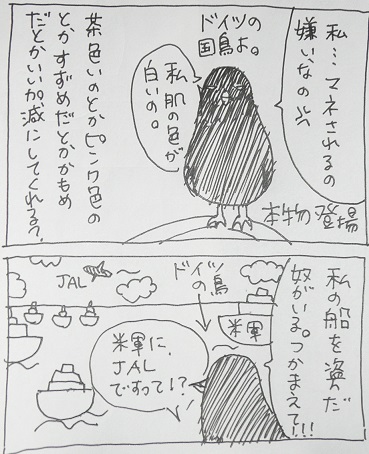 私…マネされるの
嫌いなの
ドイツの
国鳥よ。
私、肌の色が
白いの。
茶色いのとかピンク色の
とかすずめだとかかもめ
だとかいい加減にしてくれる?
本物登場
私の船を盗だ
奴がいる。つかまえて!!!
ドイツ
の鳥
米軍
JAL
米軍に、
JAL
ですって!?